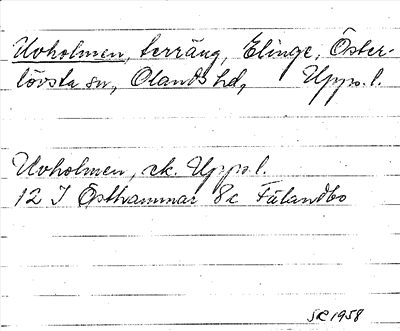 Uvholmen, terräng, Elinge, Öster-
lövsta sn, Olands hd, Upps. l.
Uvholmen, rk. Upps. l.
12 I Östhammar 8c Fälandbo
SR 1958